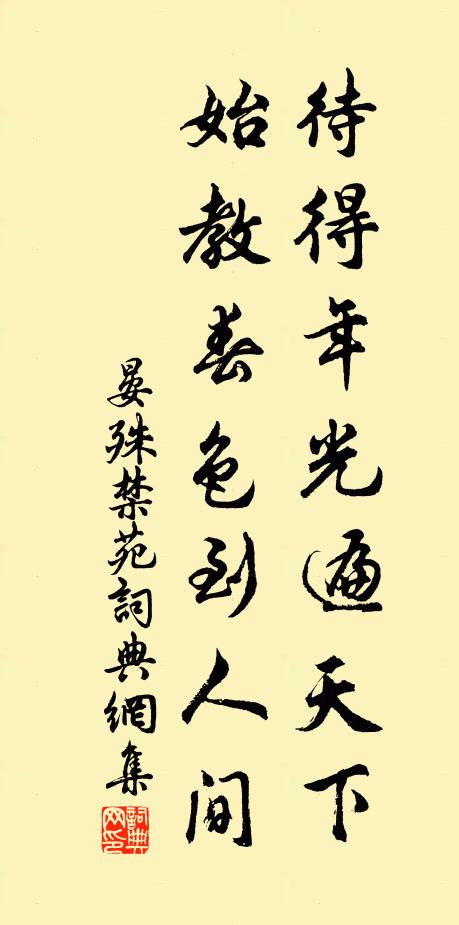 待得年光遍天下
始教春色到人间
晏殊禁苑詞典網集
詞典网印